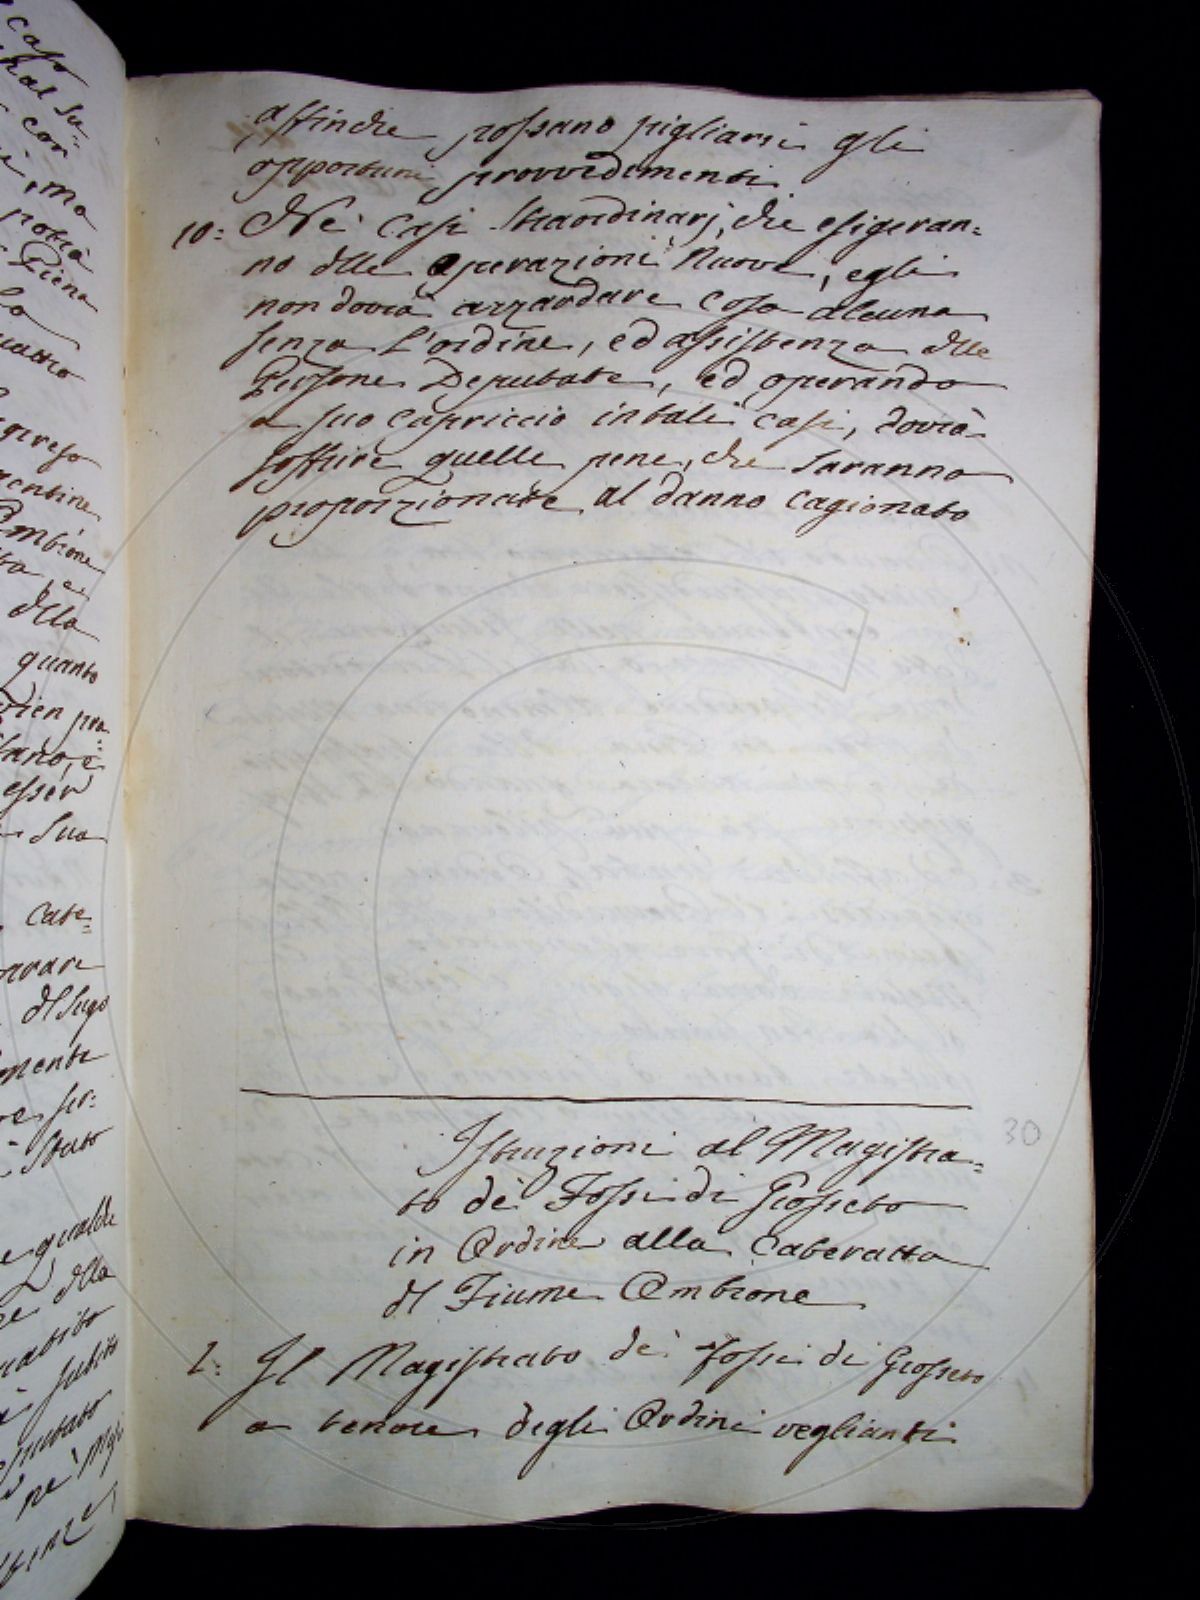 caso
nal Su=
cor
, ma
potrà
Piena
la
uattro
ombrone
della
quanto
esser
Sua
Cate=
del Sugo
mente
Stato
e qualche
della
subito
putato
affinche possano pigliarsi gli
opportuni provvedimenti
10: Ne' Casi Straordinarj, che esigeran=
no delle Operazioni Nuove, egli
non dovrà azzardare cosa alcuna
senza L'ordine, ed assistenza delle
Persone Deputate, ed operando
a suo capriccio in tali casi, dovrà
soffrire quelle pene, che saranno
proporzionate al danno cagionato
30
Istruzioni al Magistra=
to de' Fossi di Grosseto
in Ordine alla Cateratta
del Fiume Ombrone
1: Il Magistrato de' Fossi di Grosseto
a tenore degli Ordini veglianti